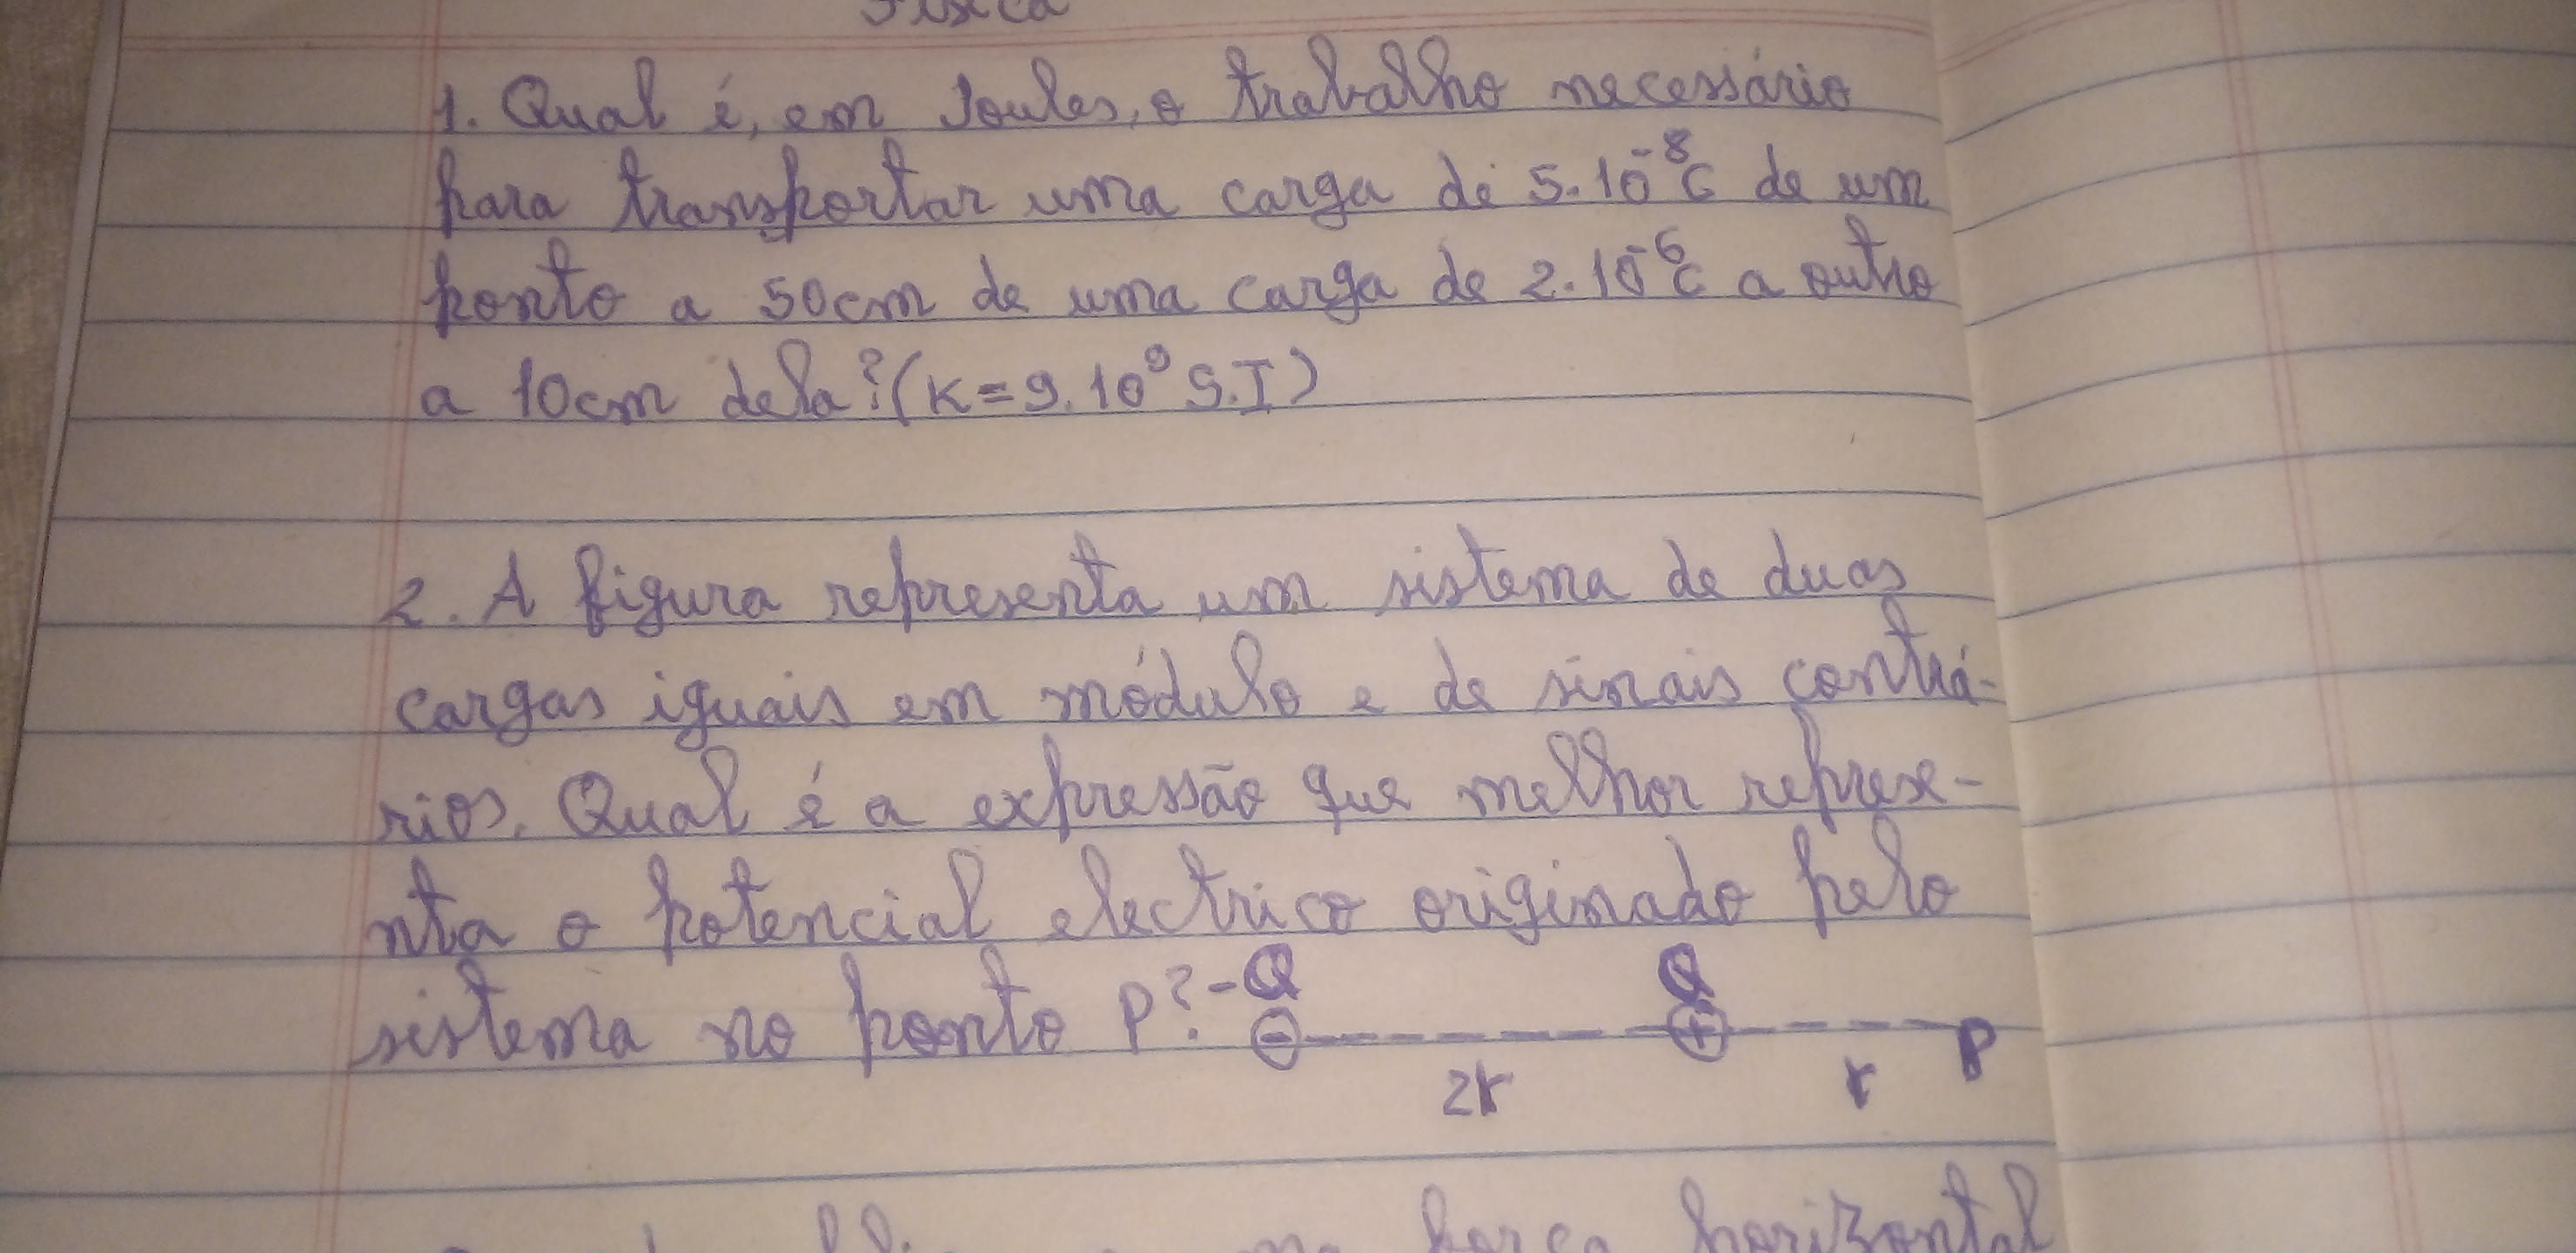 Física
1. Qual é, em Joules, o trabalho necessário
para transportar uma carga de 5.10⁻⁸C de um
ponto a 50cm de uma carga de 2.10⁻⁶C a outro
a 10cm dela? (K=9.10⁹ S.I)
2. A figura representa um sistema de duas
cargas iguais em módulo e de sinais contrá-
rios. Qual é a expressão que melhor represe-
nta o potencial electrico originado pelo
sistema no ponto P? -Q Q
- + P
2r r
força horizontal